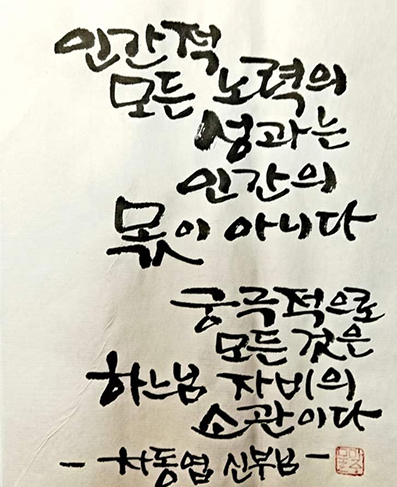 인간적
모든 노력의
성과는
인간의
몫이 아니다
궁극적으로
모든 것은
하느님 자비의
소관이다
- 차동엽 신부님 -